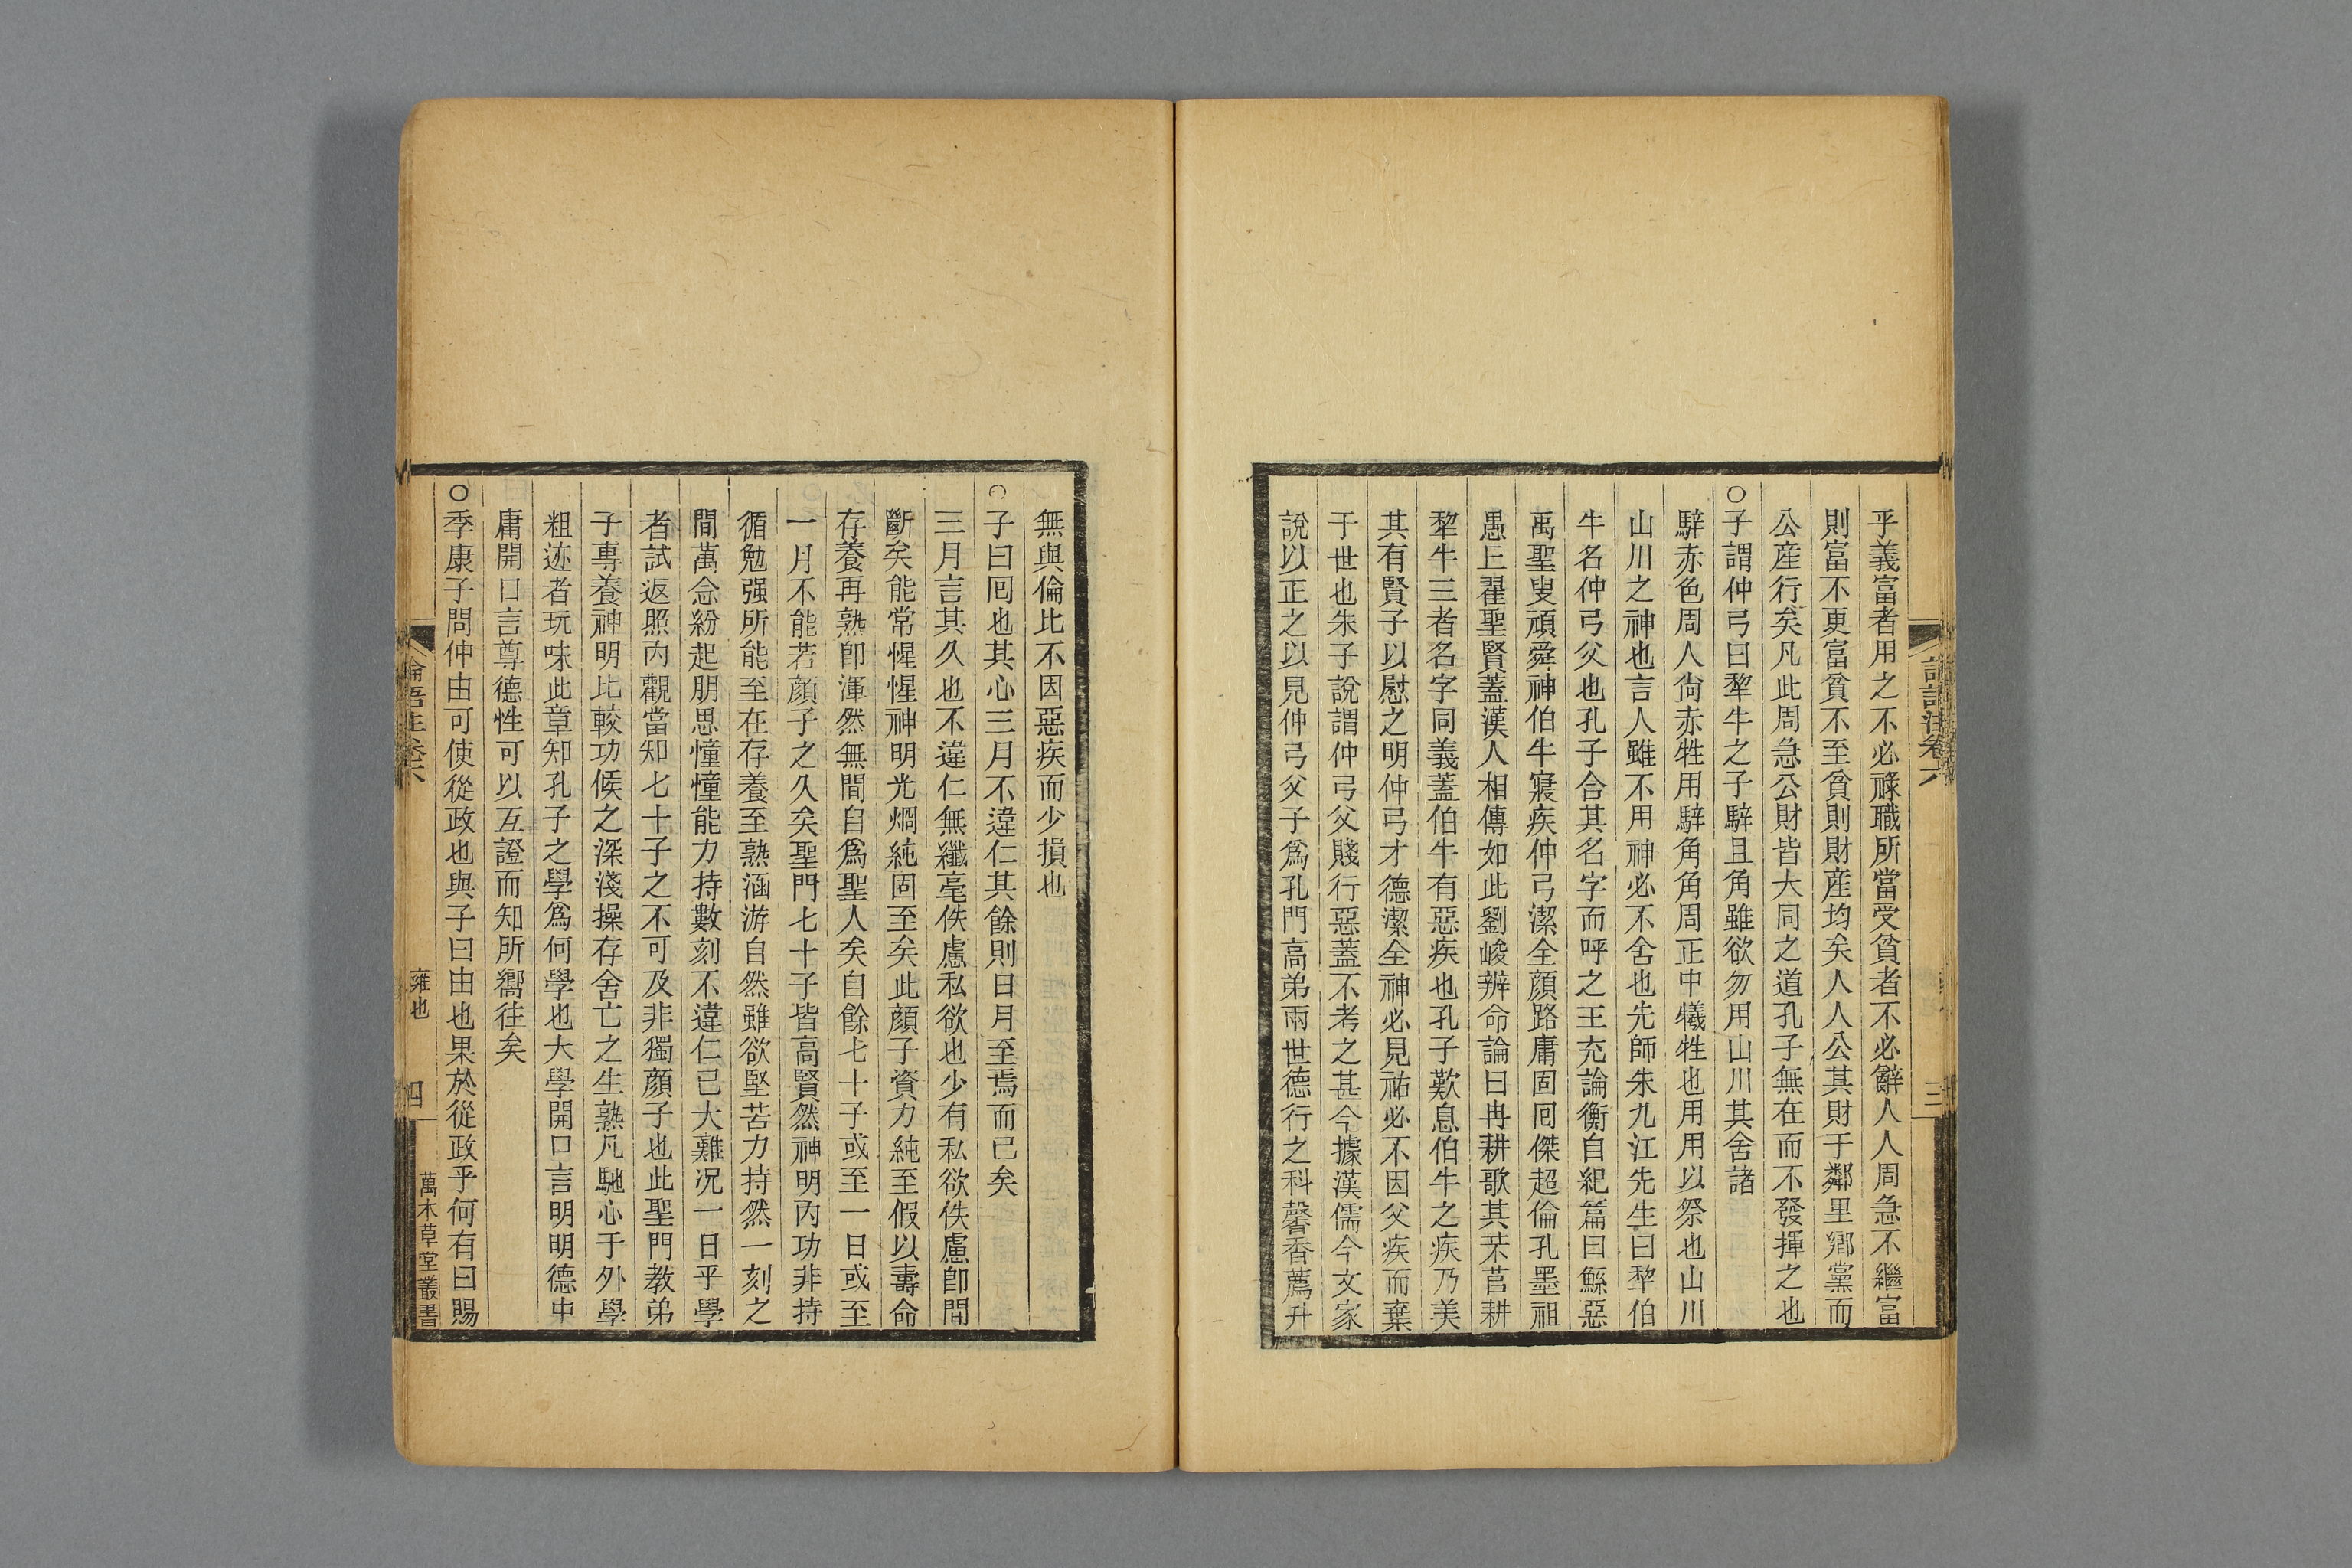 論語注卷六
三
乎義富者用之不必祿職所當受貧者不必辭人人周急不繼富
則富不更富貧不至貧則財産均矣人人公其財于鄰里鄉黨而
公産行矣凡此周急公財皆大同之道孔子無在而不發揮之也
○子謂仲弓曰犂牛之子騂且角雖欲勿用山川其舍諸
騂赤色周人尙赤牲用騂角角周正中犧牲也用用以祭也山川
山川之神也言人雖不用神必不舍也先師朱九江先生曰犂伯
牛名仲弓父也孔子合其名字而呼之王充論衡自紀篇曰鯀惡
禹聖叟頑舜神伯牛寢疾仲弓潔全顏路庸固囘傑超倫孔墨祖
愚丘翟聖賢蓋漢人相傳如此劉峻辨命論曰冉耕歌其芣苢耕
犂牛三者名字同義蓋伯牛有惡疾也孔子歎息伯牛之疾乃美
其有賢子以慰之明仲弓才德潔全神必見祐必不因父疾而棄
于世也朱子說謂仲弓父賤行惡蓋不考之甚今據漢儒今文家
說以正之以見仲弓父子爲孔門高弟兩世德行之科馨香薦升
無與倫比不因惡疾而少損也
○子曰囘也其心三月不違仁其餘則日月至焉而已矣
三月言其久也不違仁無纖毫佚慮私欲也少有私欲佚慮卽間
斷矣能常惺惺神明光烱純固至矣此顏子資力純至假以壽命
存養再熟卽渾然無間自爲聖人矣自餘七十子或至一日或至
一月不能若顏子之久矣聖門七十子皆高賢然神明內功非持
循勉强所能至在存養至熟涵游自然雖欲堅苦力持然一刻之
間萬念紛起朋思憧憧能力持數刻不違仁已大難况一日乎學
者試返照內觀當知七十子之不可及非獨顏子也此聖門教弟
子專養神明比較功候之深淺操存舍亡之生熟凡馳心于外學
粗迹者玩味此章知孔子之學爲何學也大學開口言明明德中
庸開口言尊德性可以互證而知所嚮往矣
○季康子問仲由可使從政也與子曰由也果於從政乎何有曰賜
論語注卷六
雍也
四
萬木草堂叢書